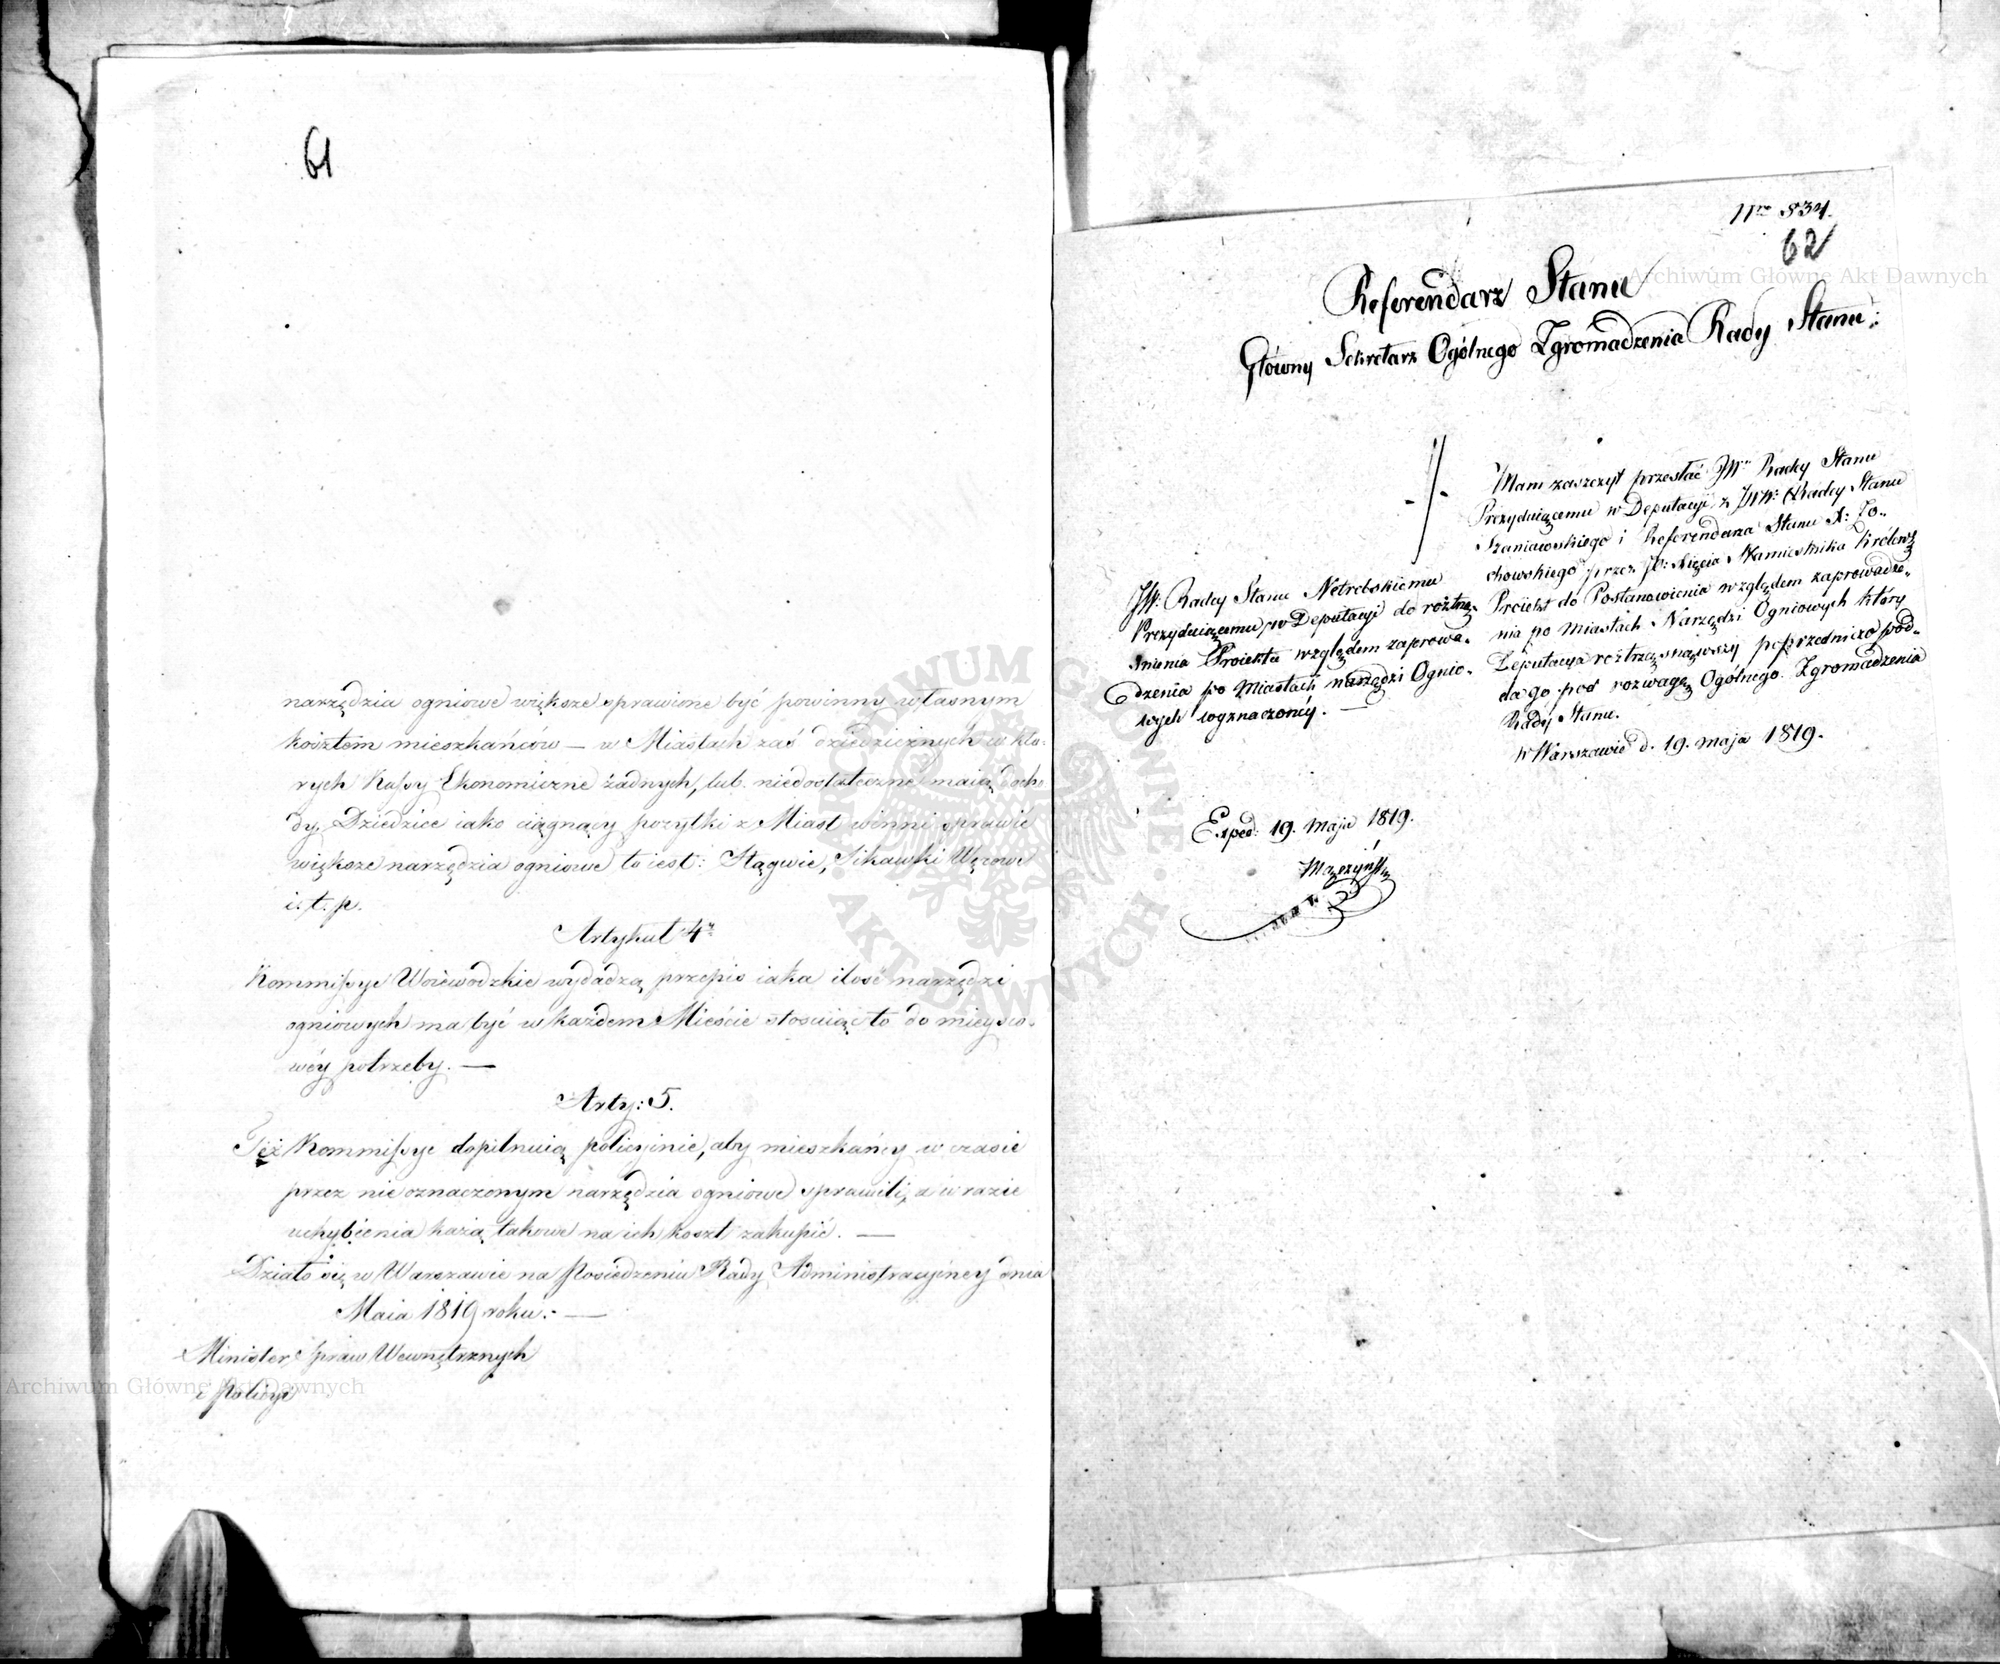 61
narzędzia ogniowe większe sprawione być powinny własnym
kosztem mieszkańców — w Miastach zaś dziedzicznych w któ-
rych Kassy Ekonomiczne żadnych, lub niedostateczne maią docho
dy, Dziedzice iako ciągnący pożytki z Miast winni sprawić
większe narzędzia ogniowe to iest: Stągwie, Sikawki Wężowe
i. t. p.
Artykuł 4ty
Kommissye Woiewodzkie wydadzą przepis iaka ilość narzędzi
ogniowych ma być w każdem Mieście stosuiąc to do mieysco-
wéy potrzeby. —
Arty: 5.
Też Kommissye dopilnuią policyinie, aby mieszkańcy w czasie
przez nie oznaczonym narzędzia ogniowe sprawili, a w razie
uchybienia każą takowe na ich koszt zakupić. —
Działo się w Warszawie na Posiedzeniu Rady Administracyiney dnia
Maia 1819 roku. —
Minister Spraw Wewnętrznych
i Policyi
Nro 834.
62
Referendarz Stanu
Główny Sekretarz Ogólnego Zgromadzenia Rady Stanu:
Mam zaszczyt przesłać JWu Radcy Stanu
Prezyduiącemu w Deputacyi z JWW: Radcy Stanu
Szaniawskiego i Referendarza Stanu X: Ło-
chowskiego przez JO: Xięcia Namiestnika Królews:
Proiekt do Postanowienia względem zaprowadze-
nia po Miastach Narzędzi Ogniowych który
Deputacya roztrząsnąwszy poprzedniczo pod-
da go pod rozwagę Ogólnego Zgromadzenia
Rady Stanu.
w Warszawie d. 19. maja 1819.
JW: Radcy Stanu Netrebskiemu
Prezyduiącemu w Deputacyi do roztrzą-
śnienia Proiektu względem zaprowa-
dzenia po Miastach narzędzi Ognio-
wych wyznaczonéy. —
Exped: 19. Maja 1819.
Archiwum Główne Akt Dawnych
Archiwum Główne Akt Dawnych
ARCHIWUM GŁÓWNE · AKT DAWNYCH ·